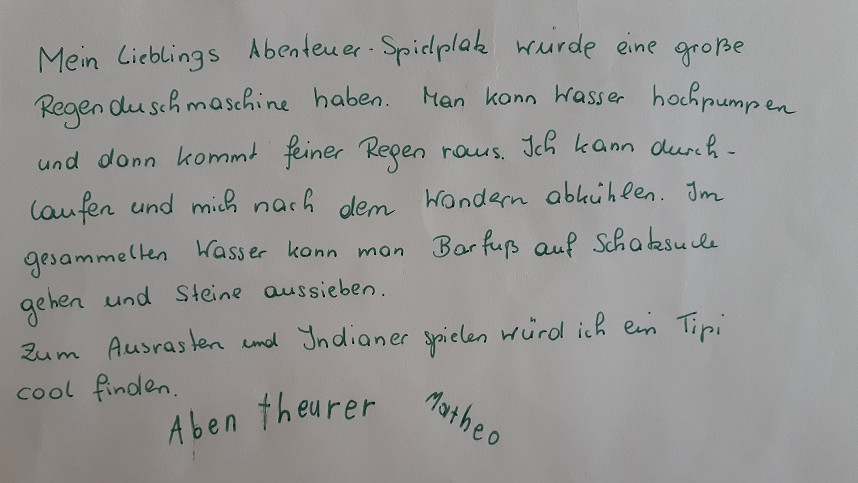 Mein Lieblings Abenteuer-Spielplatz würde eine große
Regenduschmaschine haben. Man kann Wasser hochpumpen
und dann kommt feiner Regen raus. Ich kann durch-
laufen und mich nach dem Wandern abkühlen. Im
gesammelten Wasser kann man Barfuß auf Schatzsuche
gehen und Steine aussieben.
Zum Ausrasten und Indianer spielen würd ich ein Tipi
cool finden.
Aben theurer Matheo